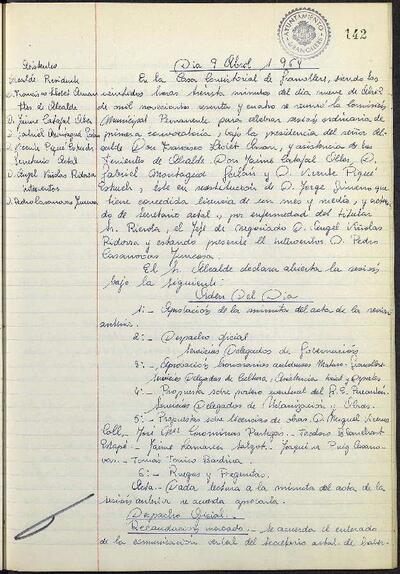 AYUNTAMIENTO
GRANOLLERS
142
Asistentes
Alcalde Presidente
D. Francisco Llobet Arnan
Ttes de Alcalde
D. Jaime
D. Gabriel Montagud
D. Vicente Piqué
Secretario Actal
D. Angel Viñolas Ridorsa
Interventor
D. Pedro Casanovas Juncosa
Dia 9 Abril 1.964
En la Casa Consistorial de Granollers, siendo las
veintidos horas treinta minutos del dia nueve de Abril
de mil novecientos sesenta y cuatro se reunió la Comisión
Municipal Permanente para celebrar sesión ordinaria de
primera convocatoria, bajo la presidencia del señor Al-
calde Don Francisco Llobet Arnan, y asistencia de los
Tenientes de Alcalde Don Jaime D.
Gabriel Montagud y D. Vicente Piqué
este en sustitución de D. Jorge Gimeno que
tiene concedida licencia de un mes y medio, y actuan-
do de secretario actal, por enfermedad del titular
Sr. Rierola, el Jefe de negociado D. Angel Viñolas
Ridorsa y estando presente el interventor D. Pedro
Casanovas Juncosa.
El Sr. Alcalde declara abierta la sesión
bajo la siguiente:
Orden Del Dia
1º- Aprobación de la minuta del acta de la sesión
anterior.
2º- Despacho oficial
Servicios Delegados de Gobernación
3º- Aprobación honorarios autobuses Mataró-Granollers
Servicios Delegados de Cultura, Asistencia Social y Deportes
4º- Propuesta sobre
Servicios Delegados de Urbanización y Obras.
5º- Propuestas sobre licencias de obras D. Miguel Vivens
Coll, José Partegas- Teodoro
Estapé- Jaime- Joaquina Puig Casano-
vas- Tomas
6º- Ruegos y Preguntas.
Acta- Dada lectura a la minuta del acta de la
sesión anterior se acuerda aprobarla.
Despacho Oficial.
Recaudación mercado.- Se acuerda el enterado
de la comunicación verbal del secretario actal. de haber-